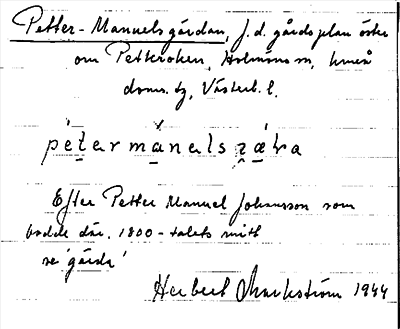 Petter-Manuelsgårdan, f.d. gårdsplan öster
om Petkroken, Holmöns sn, Umeå
doms.tg, Västerb. l.
pétermánalszáɽa
Efter Petter Manuel Johansson som
bodde där. 1800-talets mitt
se 'gärda'
Herbert Markström 1944